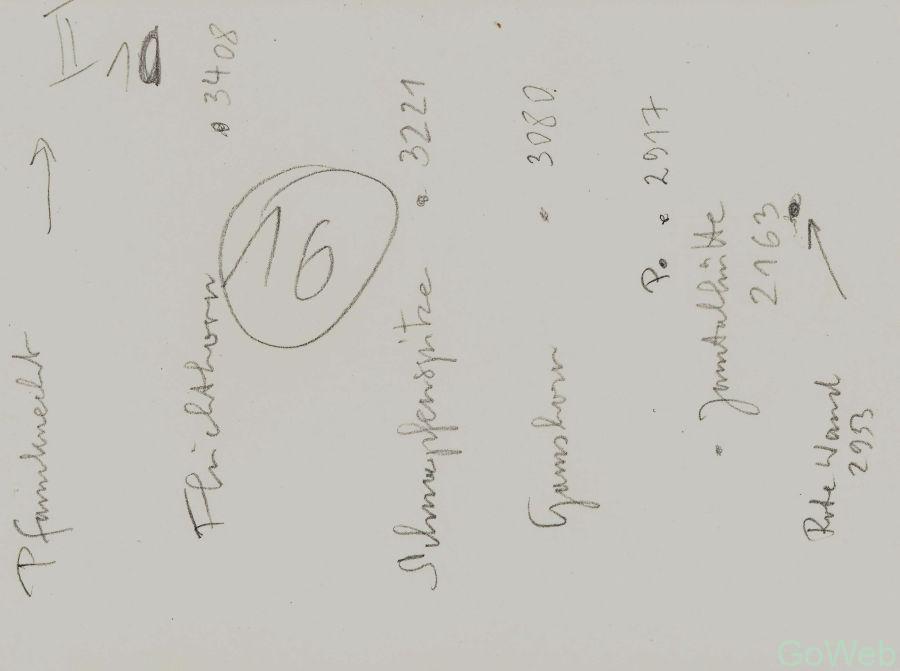 II
10
Pfannknecht →
Fluchthorn • 3408
16
Schnapfenspitze • 3221
Gamshorn • 3080
P. • 2917
• Jamtalhütte
2163
Rote Wand
2953
GoWeb